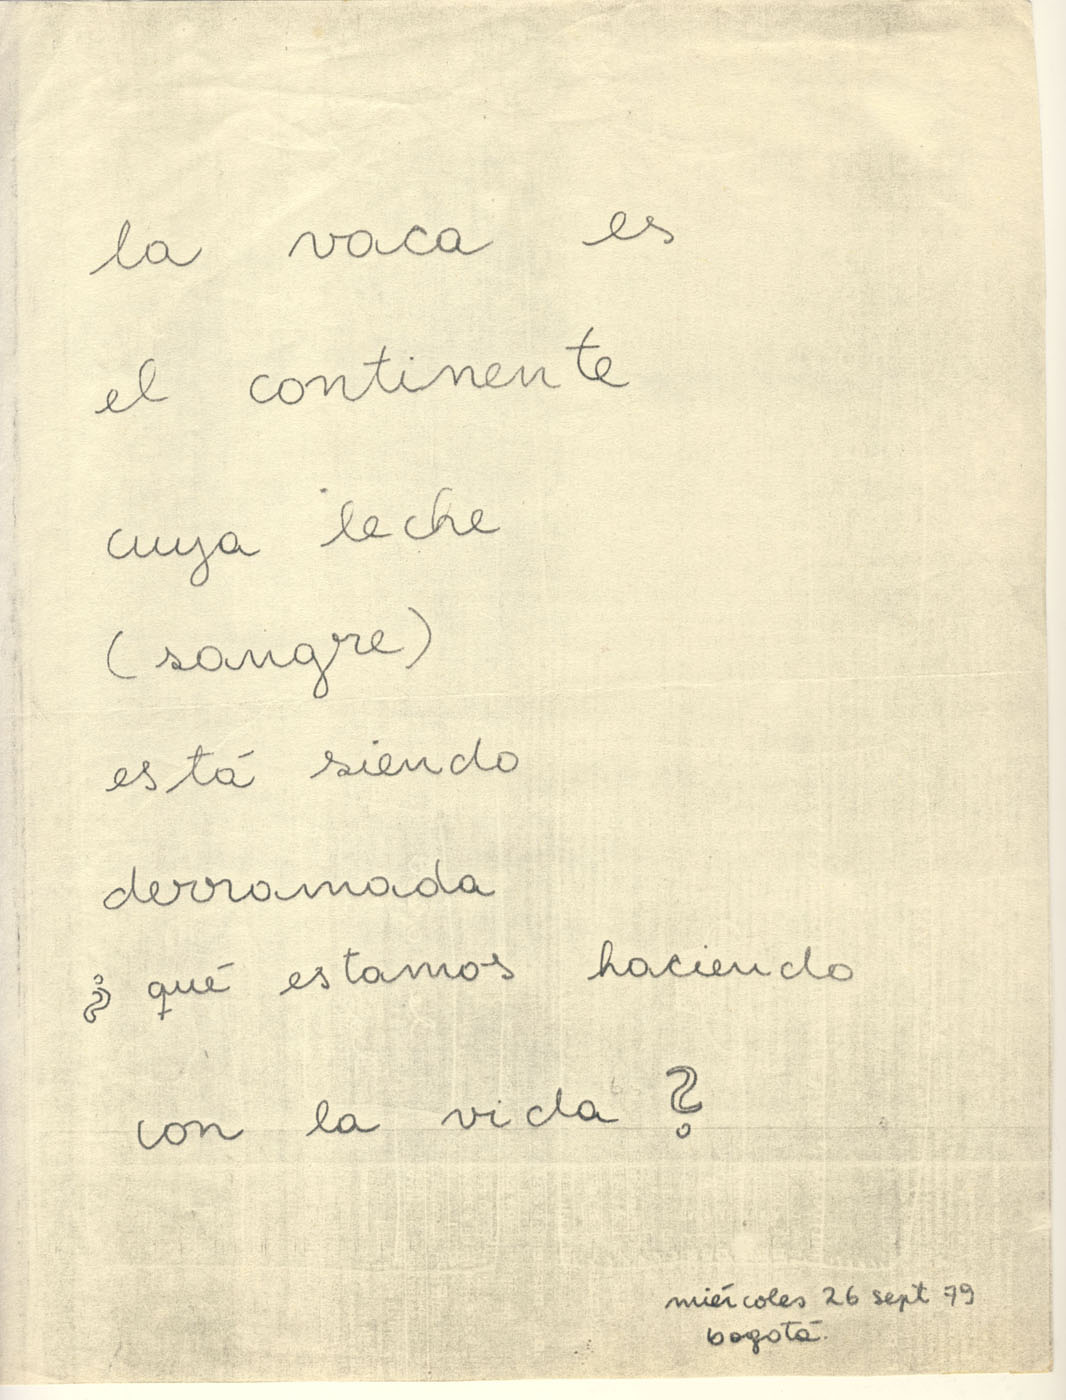 la vaca es
el continente
cuya leche
(sangre)
está siendo
derramada
¿qué estamos haciendo
con la vida?
miércoles 26 sept 79
bogotá.